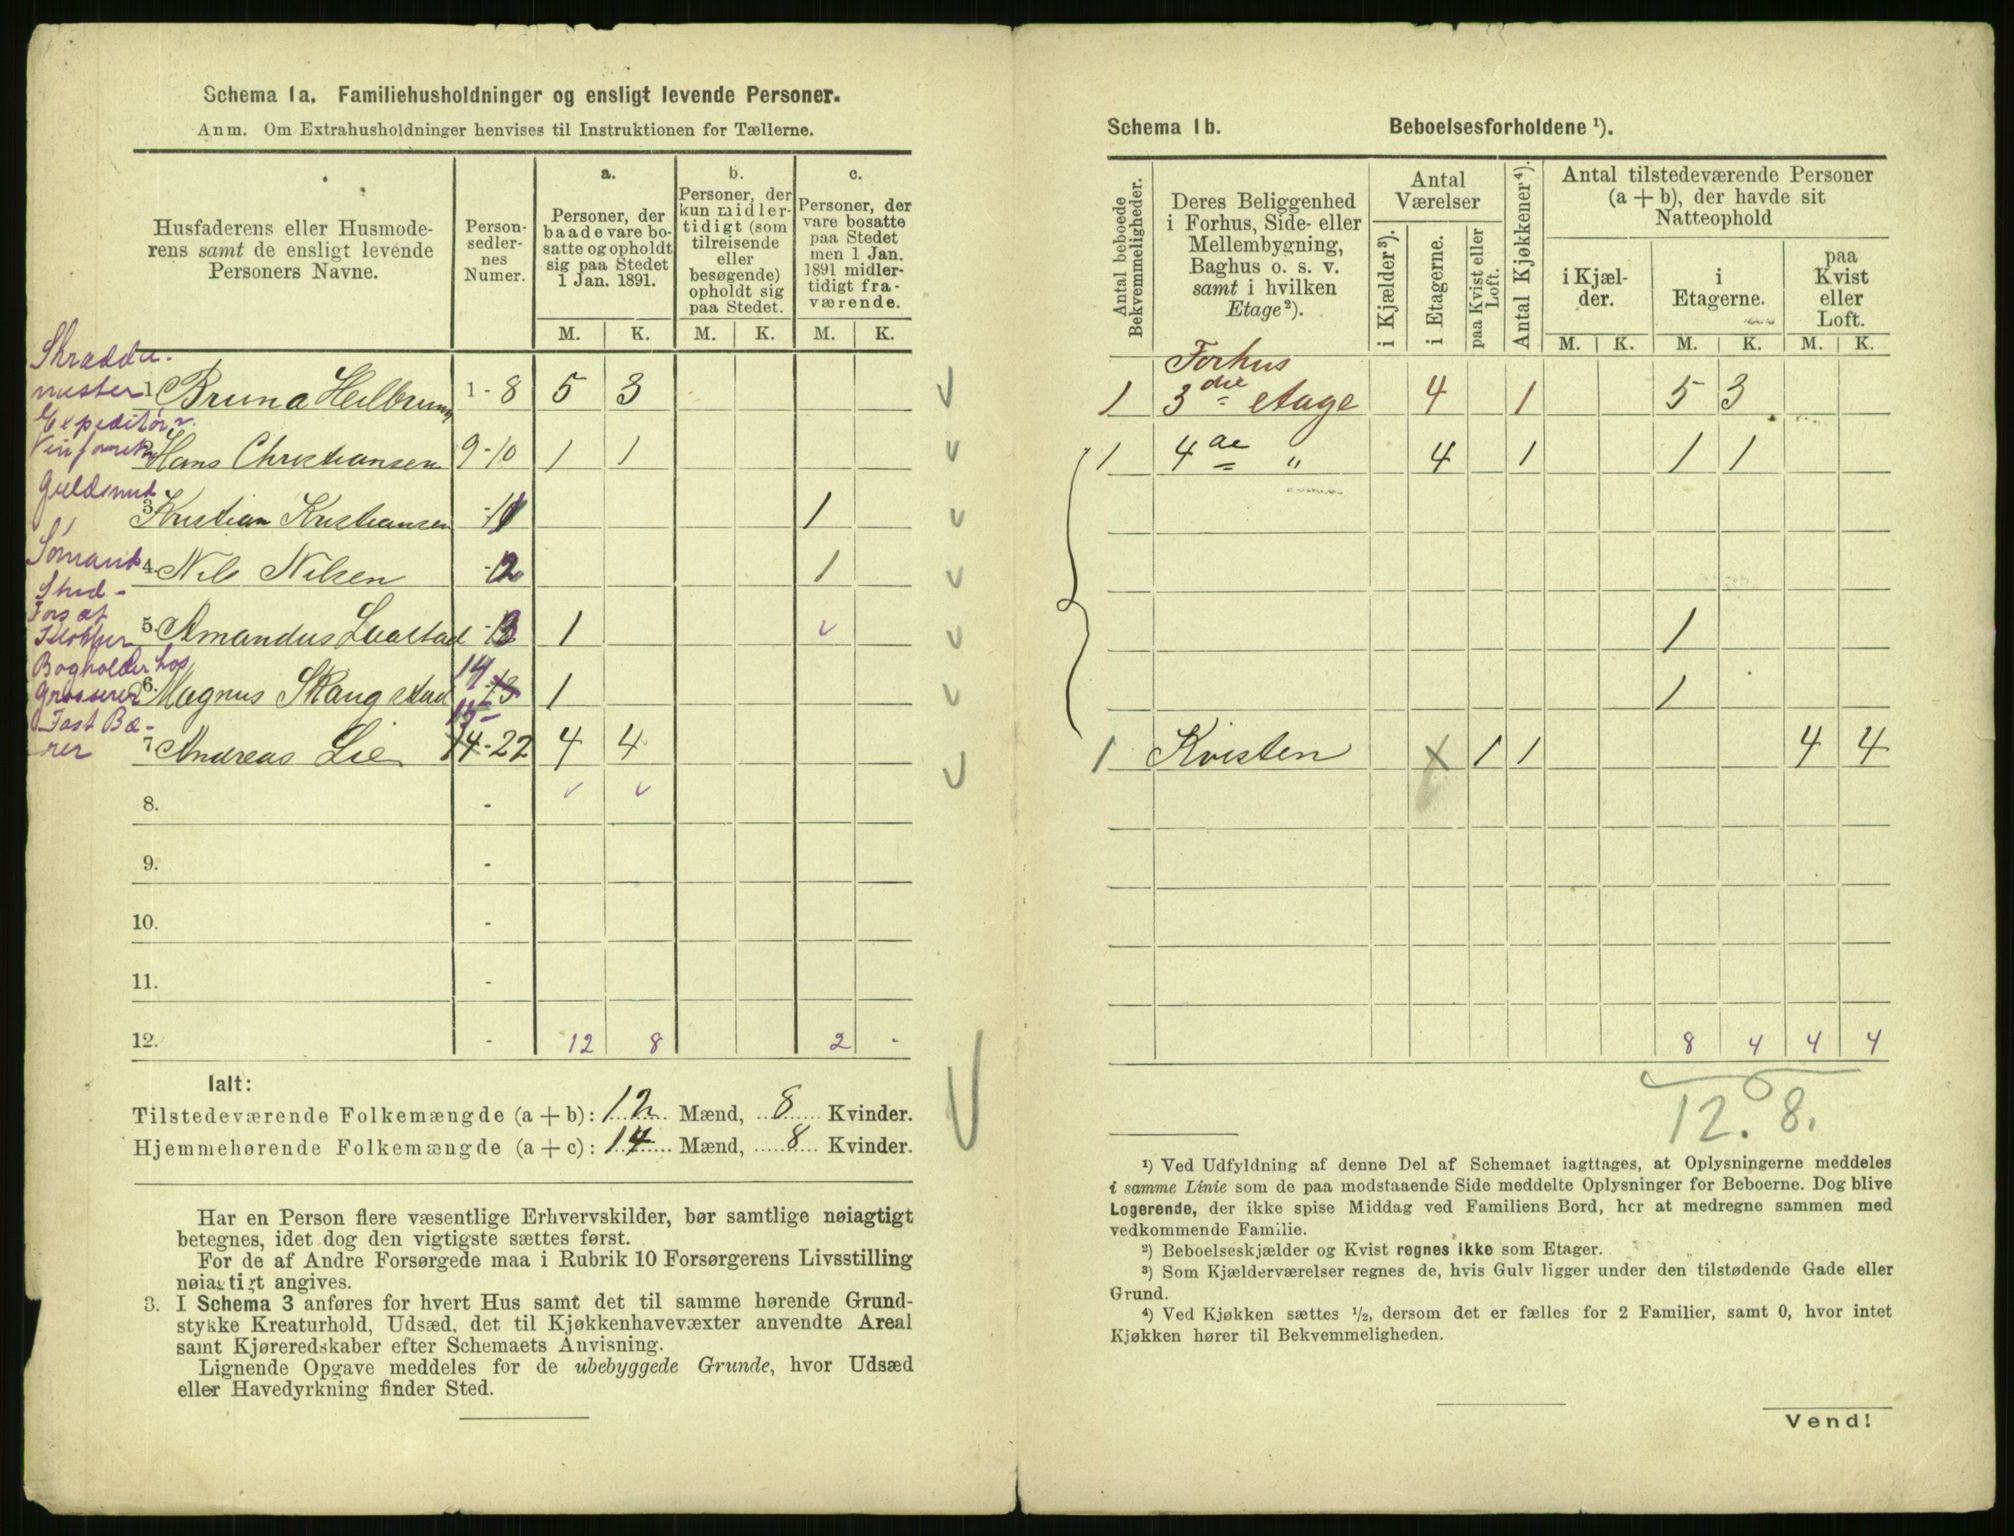 Schema 1a. Familiehusholdninger og ensligt levende Personer.
Anm. Om Extrahusholdninger henvises til Instruktionen for Tællerne.
Husfaderens eller Husmode-
rens samt de ensligt levende
Personers Navne.
Person-
sedler-
nes
Numer.
a.
Personer, der
baade vare bo-
satte og opholdt
sig paa Stedet
1 Jan. 1891.
b.
Personer, der
kun midler-
tidigt (som
tilreisende
eller
besøgende)
opholdt sig
paa Stedet.
c.
Personer, der
vare bosatte
paa Stedet
men 1 Jan.
1891 midler-
tidigt fra-
værende.
M. K. M. K. M. K.
Skrædder
mester 1 Bruno Heilbrunn 1-8 5 3
Expeditør v.
2 Hans Christiansen 9-10 1 1
Guldsmed
3 Kristian Kristiansen -11 1
Sømand 4. Nils Nilsen -12 1
Stud -
Fors af
Klokker 5. Amandus -13 1
Bogholder hos
Grosserer 6. Magnus Skaugstad 14 -13 1
Fast Bæ-
rer 7 Andreas Lie 15 14-22 4 4
8. -
9. -
10. -
11. -
12. - 12 8 2 -
Ialt:
Tilstedeværende Folkemængde (a + b): 12 Mænd, 8 Kvinder.
Hjemmehørende Folkemængde (a + c): 14 Mænd, 8 Kvinder.
Har en Person flere væsentlige Erhvervskilder, bør samtlige nøiagtigt
betegnes, idet dog den vigtigste sættes først.
For de af Andre Forsørgede maa i Rubrik 10 Forsørgerens Livsstilling
nøiagtigt angives.
3. I Schema 3 anføres for hvert Hus samt det til samme hørende Grund-
stykke Kreaturhold, Udsæd, det til Kjøkkenhavevæxter anvendte Areal
samt Kjøreredskaber efter Schemaets Anvisning.
Lignende Opgave meddeles for de ubebyggede Grunde, hvor Udsæd
eller Havedyrkning finder Sted.
Schema 1b. Beboelsesforholdene ¹).
Antal beboede
Bekvemmeligheder.
Deres Beliggenhed
i Forhus, Side- eller
Mellembygning,
Baghus o. s. v.
samt i hvilken
Etage ²).
Antal
Værelser
i Kjælder ³).
i Etagerne.
paa Kvist eller
Loft.
Antal Kjøkkener ⁴).
Antal tilstedeværende Personer
(a + b), der havde sit
Natteophold
i Kjæl-
der.
i
Etagerne.
paa
Kvist
eller
Loft.
M. K. M. K. M. K.
Forhus
1 3die etage 4 1 5 3
1 4de " 4 1 1 1
1
1
1 Kvisten 1 1 4 4
8 4 4 4
12. 8.
¹) Ved Udfyldning af denne Del af Schemaet iagttages, at Oplysningerne meddeles
i samme Linie som de paa modstaaende Side meddelte Oplysninger for Beboerne. Dog blive
Logerende, der ikke spise Middag ved Familiens Bord, her at medregne sammen med
vedkommende Familie.
²) Beboelseskjælder og Kvist regnes ikke som Etager.
³) Som Kjælderværelser regnes de, hvis Gulv ligger under den tilstødende Gade eller
Grund.
⁴) Ved Kjøkken sættes ½, dersom det er fælles for 2 Familier, samt 0, hvor intet
Kjøkken hører til Bekvemmeligheden.
Vend!